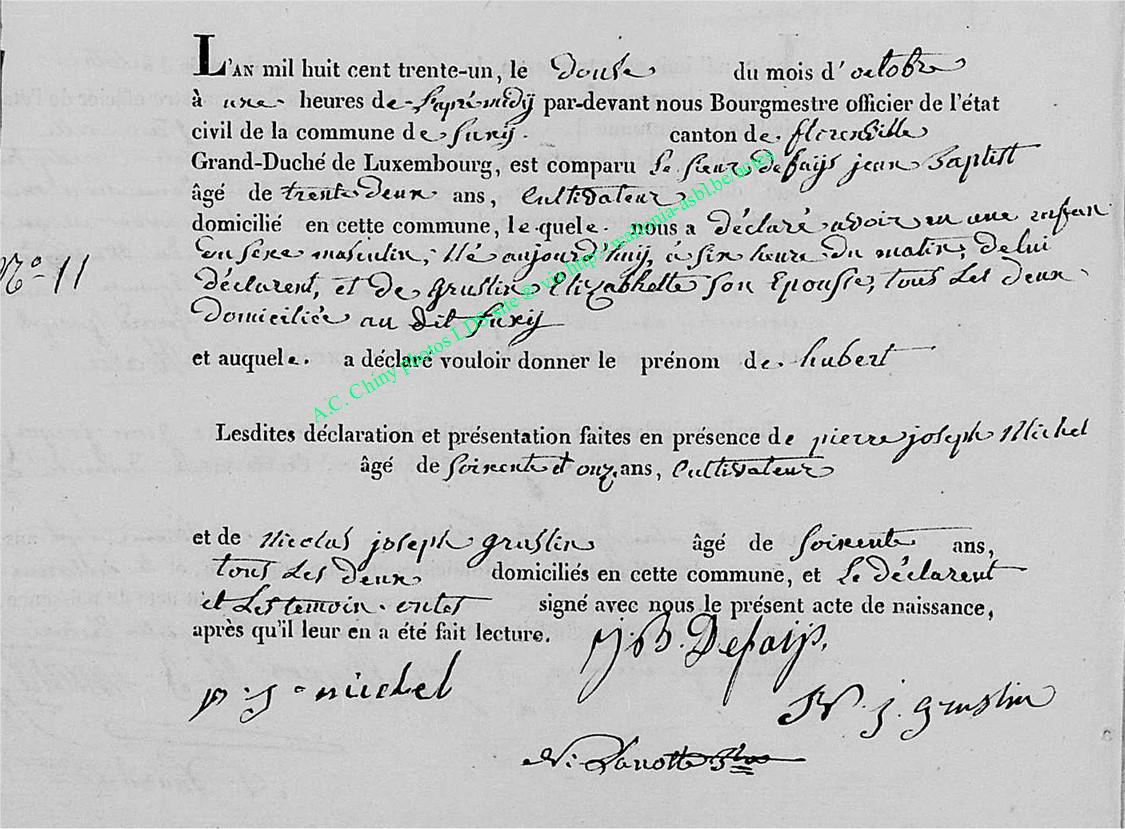 L'AN mil huit cent trente-un, le Douse du mois d'octobre
à une heures de l'aprémidÿ par-devant nous Bourgmestre officier de l'état
civil de la commune de Suxÿ canton de florenville
Grand-Duché de Luxembourg, est comparu Le Sieur Defaÿs jean Baptist
âgé de trente deux ans, Cultivateur
domicilié en cette commune, le quele nous a déclaré avoir eu une enfan
Nº 11
du sexe masculin, Né aujourd'huy, à six heure du matin, de lui
déclarent, et de gruslin Elizabhette son Epouse, tous Les deux
Domiciliée au dit Suxÿ
et auquele a déclaré vouloir donner le prénom de hubert
Lesdites déclaration et présentation faites en présence de pierre joseph Michel
âgé de Soixente et onz ans, Cultivateur
et de Nicolas joseph gruslin âgé de Soixente ans,
tous Les deux domiciliés en cette commune, et Le déclarent
et Les temoin ontes signé avec nous le présent acte de naissance,
après qu'il leur en a été fait lecture.
J.B. Defaijs.
p. j. michel
N. j. gruslin
A.C. Chiny photos LDS site © via http://wallonia-asbl.be/actes